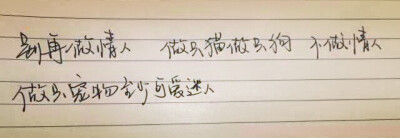 别再做情人 做只猫做只狗 不做情人
做只宠物至少可爱迷人